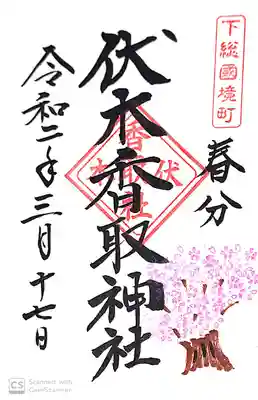 下総國境町
春分
伏木香取神社
令和二年三月十七日
CS Scanned with CamScanner